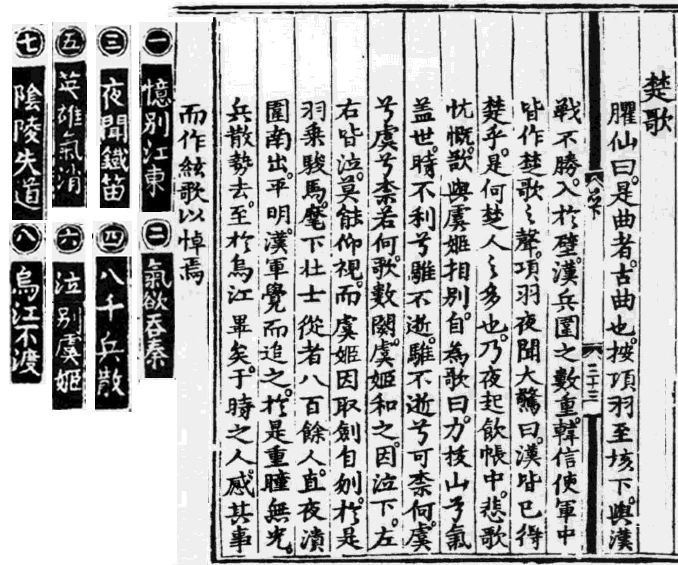 楚歌
臞仙曰。是曲者。古曲也。按項羽至垓下。與漢
戰不勝。入於壁。漢兵圍之數重。韓信使軍中
皆作楚歌之聲。項羽夜聞大驚曰。漢皆已得
楚乎。是何楚人之多也。乃夜起飲帳中。悲歌
忼慨。歌與虞姬相別。自為歌曰。力拔山兮氣
蓋世。時不利兮騅不逝。騅不逝兮可柰何。虞
兮虞兮柰若何。歌數闋。虞姬和之。因泣下。左
右皆泣。莫能仰視。而虞姬因取劍自刎。於是
羽乘駿馬。麾下壯士從者八百餘人。直夜潰
圍南出。平明。漢軍覺而追之。於是重瞳無光。
兵散勢去。至於烏江畢矣。于時之人。感其事
而作絃歌以悼焉
二十三
一 憶別江東
二 氣欲吞秦
三 夜聞鐵笛
四 八千兵散
五 英雄氣消
六 泣別虞姬
七 陰陵失道
八 烏江不渡